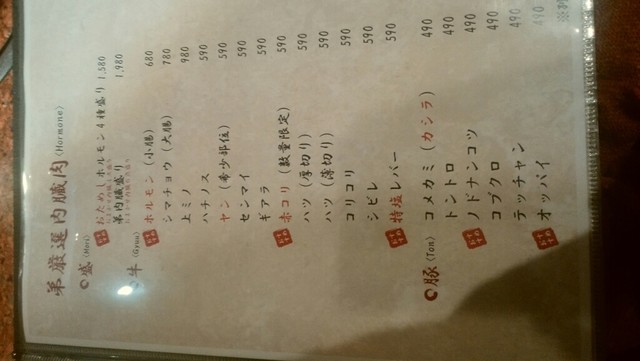 弟厳選内臓肉〈Hormone〉
盛〈Mori〉
おためしホルモン4種盛り 1,580
弟内臓盛り 1,980
牛〈Gyuu〉
ホルモン(小腸) 680
シマチョウ(大腸) 780
上ミノ 980
ハチノス 590
ヤン(希少部位) 590
センマイ 590
ギアラ 590
赤コリ(数量限定) 590
ハツ(厚切り) 590
ハツ(薄切り) 590
コリコリ 590
シビレ 590
特塩レバー 590
豚〈Ton〉
コメカミ(カシラ) 490
トントロ 490
ノドナンコツ 490
コブクロ 490
テッチャン 490
オッパイ 490